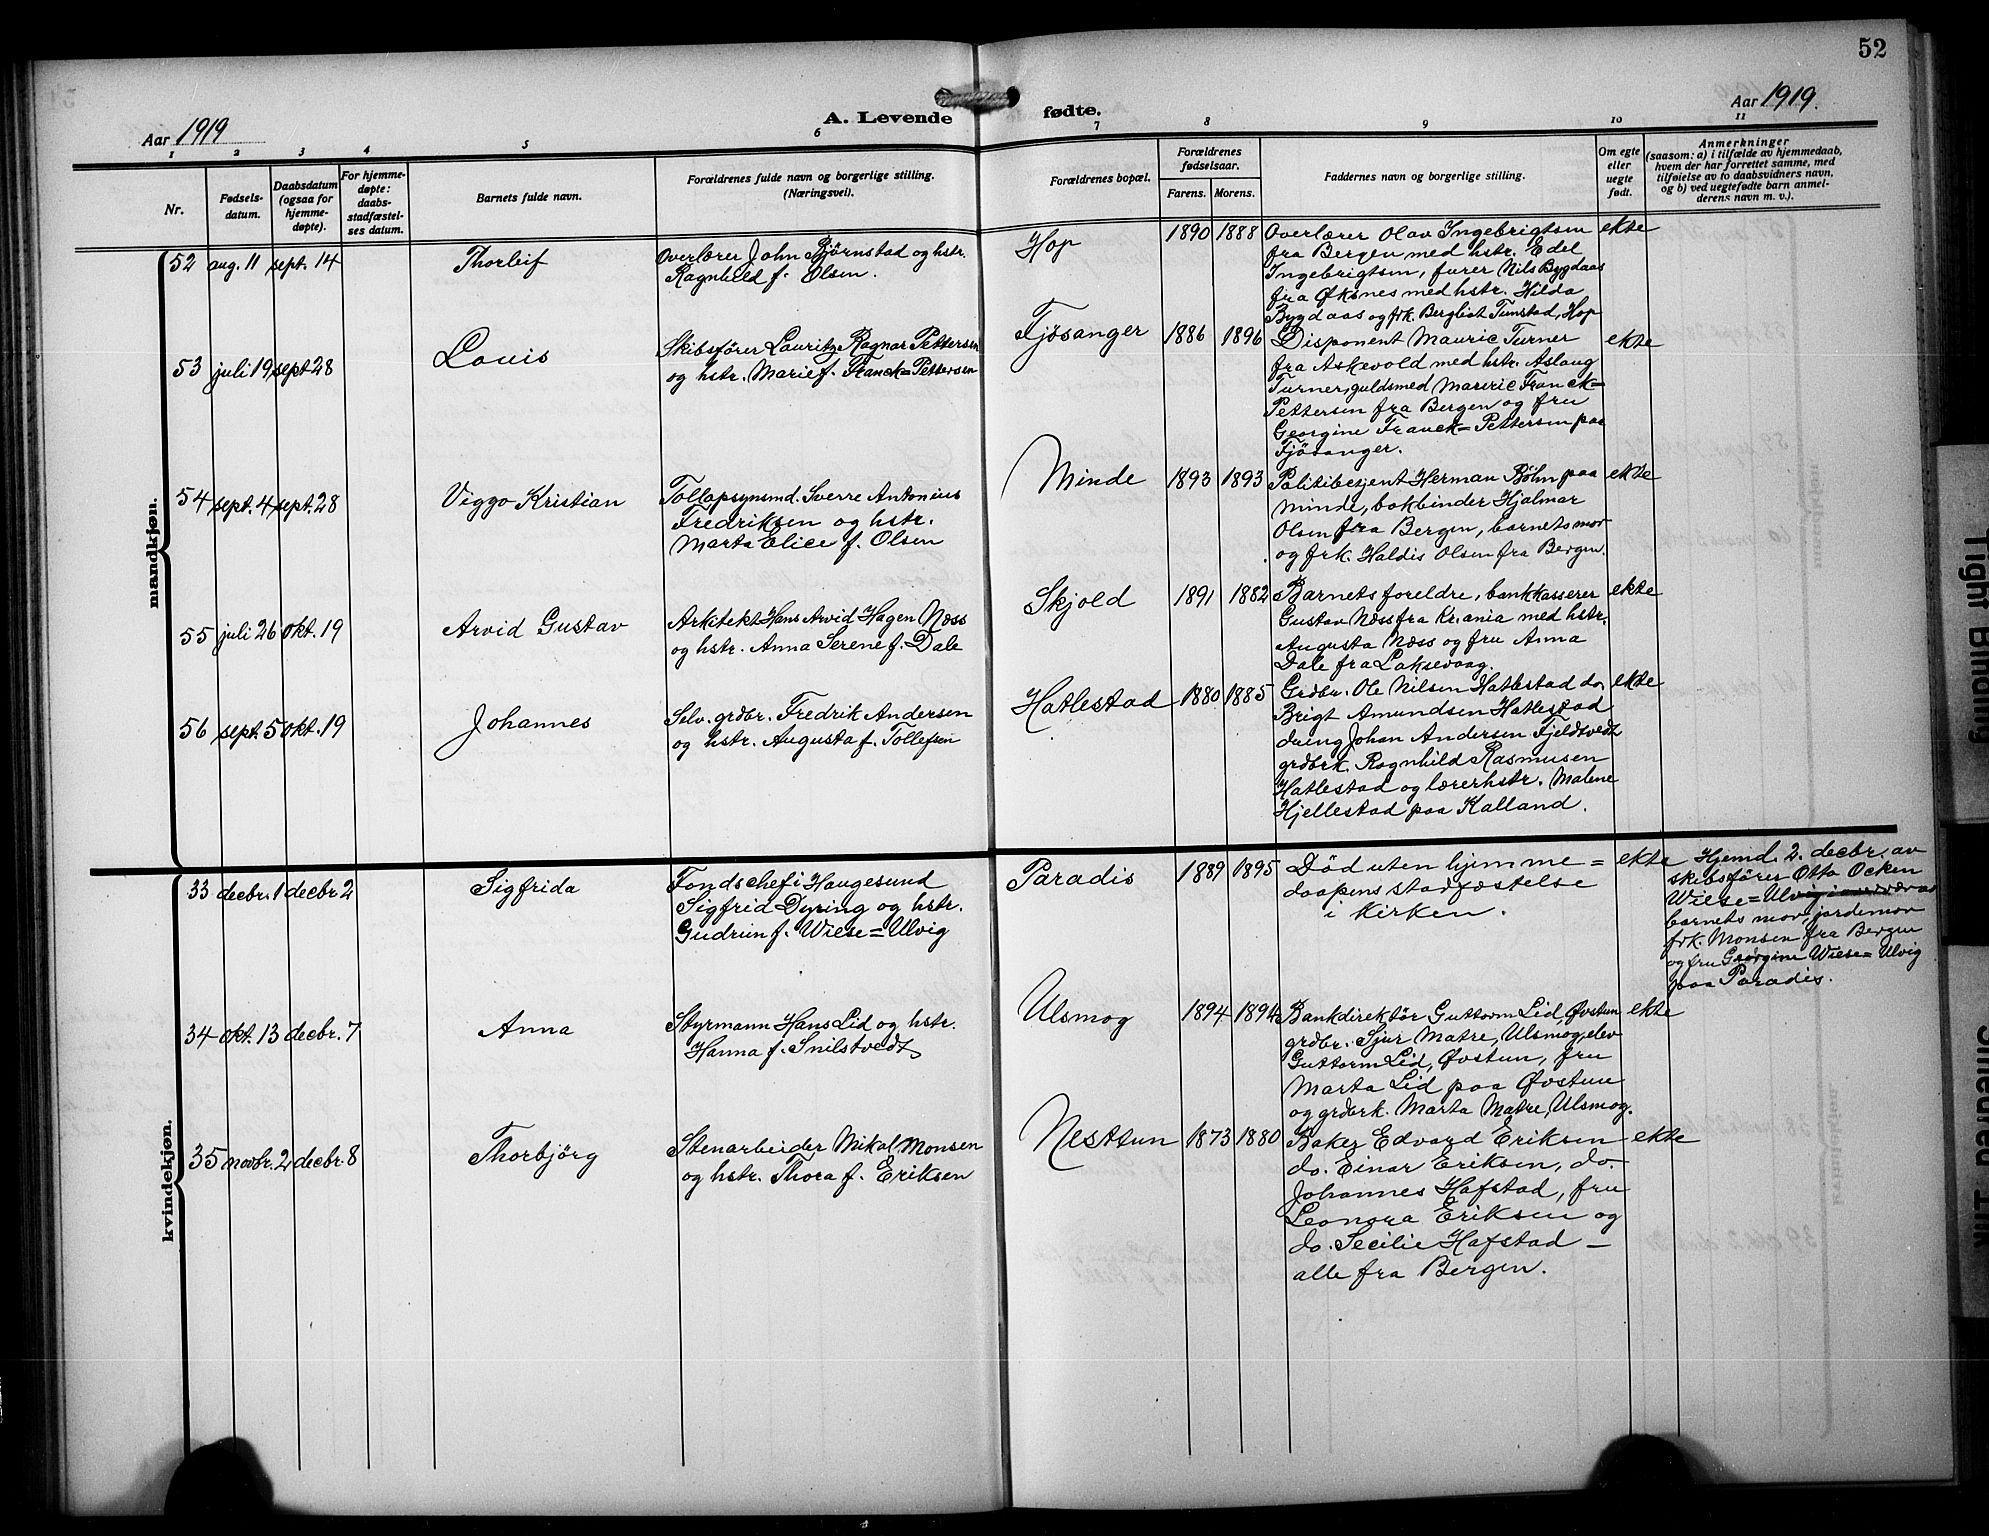 52
A. Levende fødte.
Aar 1919
Aar 1919.
1 2 3 4 5 6 7 8 9 10 11
Nr.
Fødsels-
datum.
Daabsdatum
(ogsaa for
hjemme-
døpte).
For hjemme-
døpte:
daabs-
stadfæstel-
ses datum.
Barnets fulde navn.
Forældrenes fulde navn og borgerlige stilling.
(Næringsvei).
Forældrenes bopæl.
Forældrenes
fødselsaar.
Farens. Morens.
Faddernes navn og borgerlige stilling.
Om egte
eller
uegte
født.
Anmerkninger
(saasom: a) i tilfælde av hjemmedaab,
hvem der har forrettet samme, med
tilføielse av to daabsvidners navn,
og b) ved uegtefødte barn anmel-
derens navn m. v.).
mandkjøn.
52 aug. 11 sept. 14 Thorleif
Overlærer John Bjørnstad og hstr.
Ragnhild f. Olsen.
Hop 1890 1888
Overlærer Olav Ingebrigtsen
fra Bergen med hstr. Edel
Ingebrigtsen, furer Nils Bygdaas
fra Øksnes med hstr. Hilda
Bygdaas og frk. Bergliot Tunstad, Hop
ekte
53 juli 19 sept 28 Louis
Skibsfører Lauritz Ragnar Pettersen
og hstr. Marie f. Franck=Pettersen
Fjøsanger 1886 1896
Disponent Mauric Turner
fra Askevold med hstr. Aslaug
Turner, guldsmed Mauric Franck=
Pettersen fra Bergen og fru
Georgine Franck=Pettersen paa
Fjøsanger.
ekte
54 sept. 4 sept. 28 Viggo Kristian
Tollopsynsmd. Sverre Antonius
Fredriksen og hstr.
Marta Elice f. Olsen
Minde 1893 1893
Politibetjent Herman Bøhn paa
Minde, bokbinder Hjalmar
Olsen fra Bergen, barnets mor
og frk. Haldis Olsen fra Bergen.
ekte
55 juli 26 okt. 19 Arvid Gustav
Arkitekt Hans Arvid Hagen Næss
og hstr. Anna Serene f. Dale
Skjold 1891 1882
Barnets foreldre, bankkasserer
Gustav Næss fra Kr.ania med hstr.
Augusta Næss og fru Anna
Dale fra Laksevaag.
ekte
56 sept. 5 okt. 19 Johannes
Selv. grdbr. Fredrik Andersen
og hstr. Augusta f. Tollefsen
Hatlestad 1880 1885
Grdbr. Ole Nilsen Hatlestad do.
Brigt Amundsen Hatlestad
dreng Johan Andersen Fjeldtvedt
grdbrk. Ragnhild Rasmusen
Hatlestad og lærerhstr. Malene
Hjellestad paa Kalland.
ekte
kvindekjøn.
33 decbr. 1 decbr 2 Sigfrida
Fondschef i Haugesund
Sigfrid Dyring og hstr.
Gudrun f. Wiese=Ulvig
Paradis 1889 1895
Død uten hjemme=
daapens stadfæstelse
i kirken.
ekte
Hjemd. 2. decbr. av
skibsfører Otto Ocken
Wiese=Ulvig
barnets mor, jordemor
frk. Monsen fra Bergen
og fru Georgine Wiese=Ulvig
paa Paradis.
34 okt. 13 decbr. 7 Anna
Styrmann Hans Lid og hstr.
Hanna f. Snilstvedt
Ulsmog 1894 1894
Bankdirektør Guttorm Lid, Øvstun
grdbr. Sjur Matre, Ulsmog, elev
Guttorm Lid, Øvstun, fru
Marta Lid paa Øvstun
og grdbrk. Marta Matre, Ulsmog.
ekte
35 novbr. 2 decbr 8 Thorbjörg
Stenarbeider Mikal Monsen
og hstr. Thora f. Eriksen
Nesttun 1873 1880
Baker Edvard Eriksen
do. Einar Eriksen, do.
Johannes Hafstad, fru
Leonora Eriksen og
do. Secilie Hafstad —
alle fra Bergen.
ekte
Tight Binding
Smeared Ink